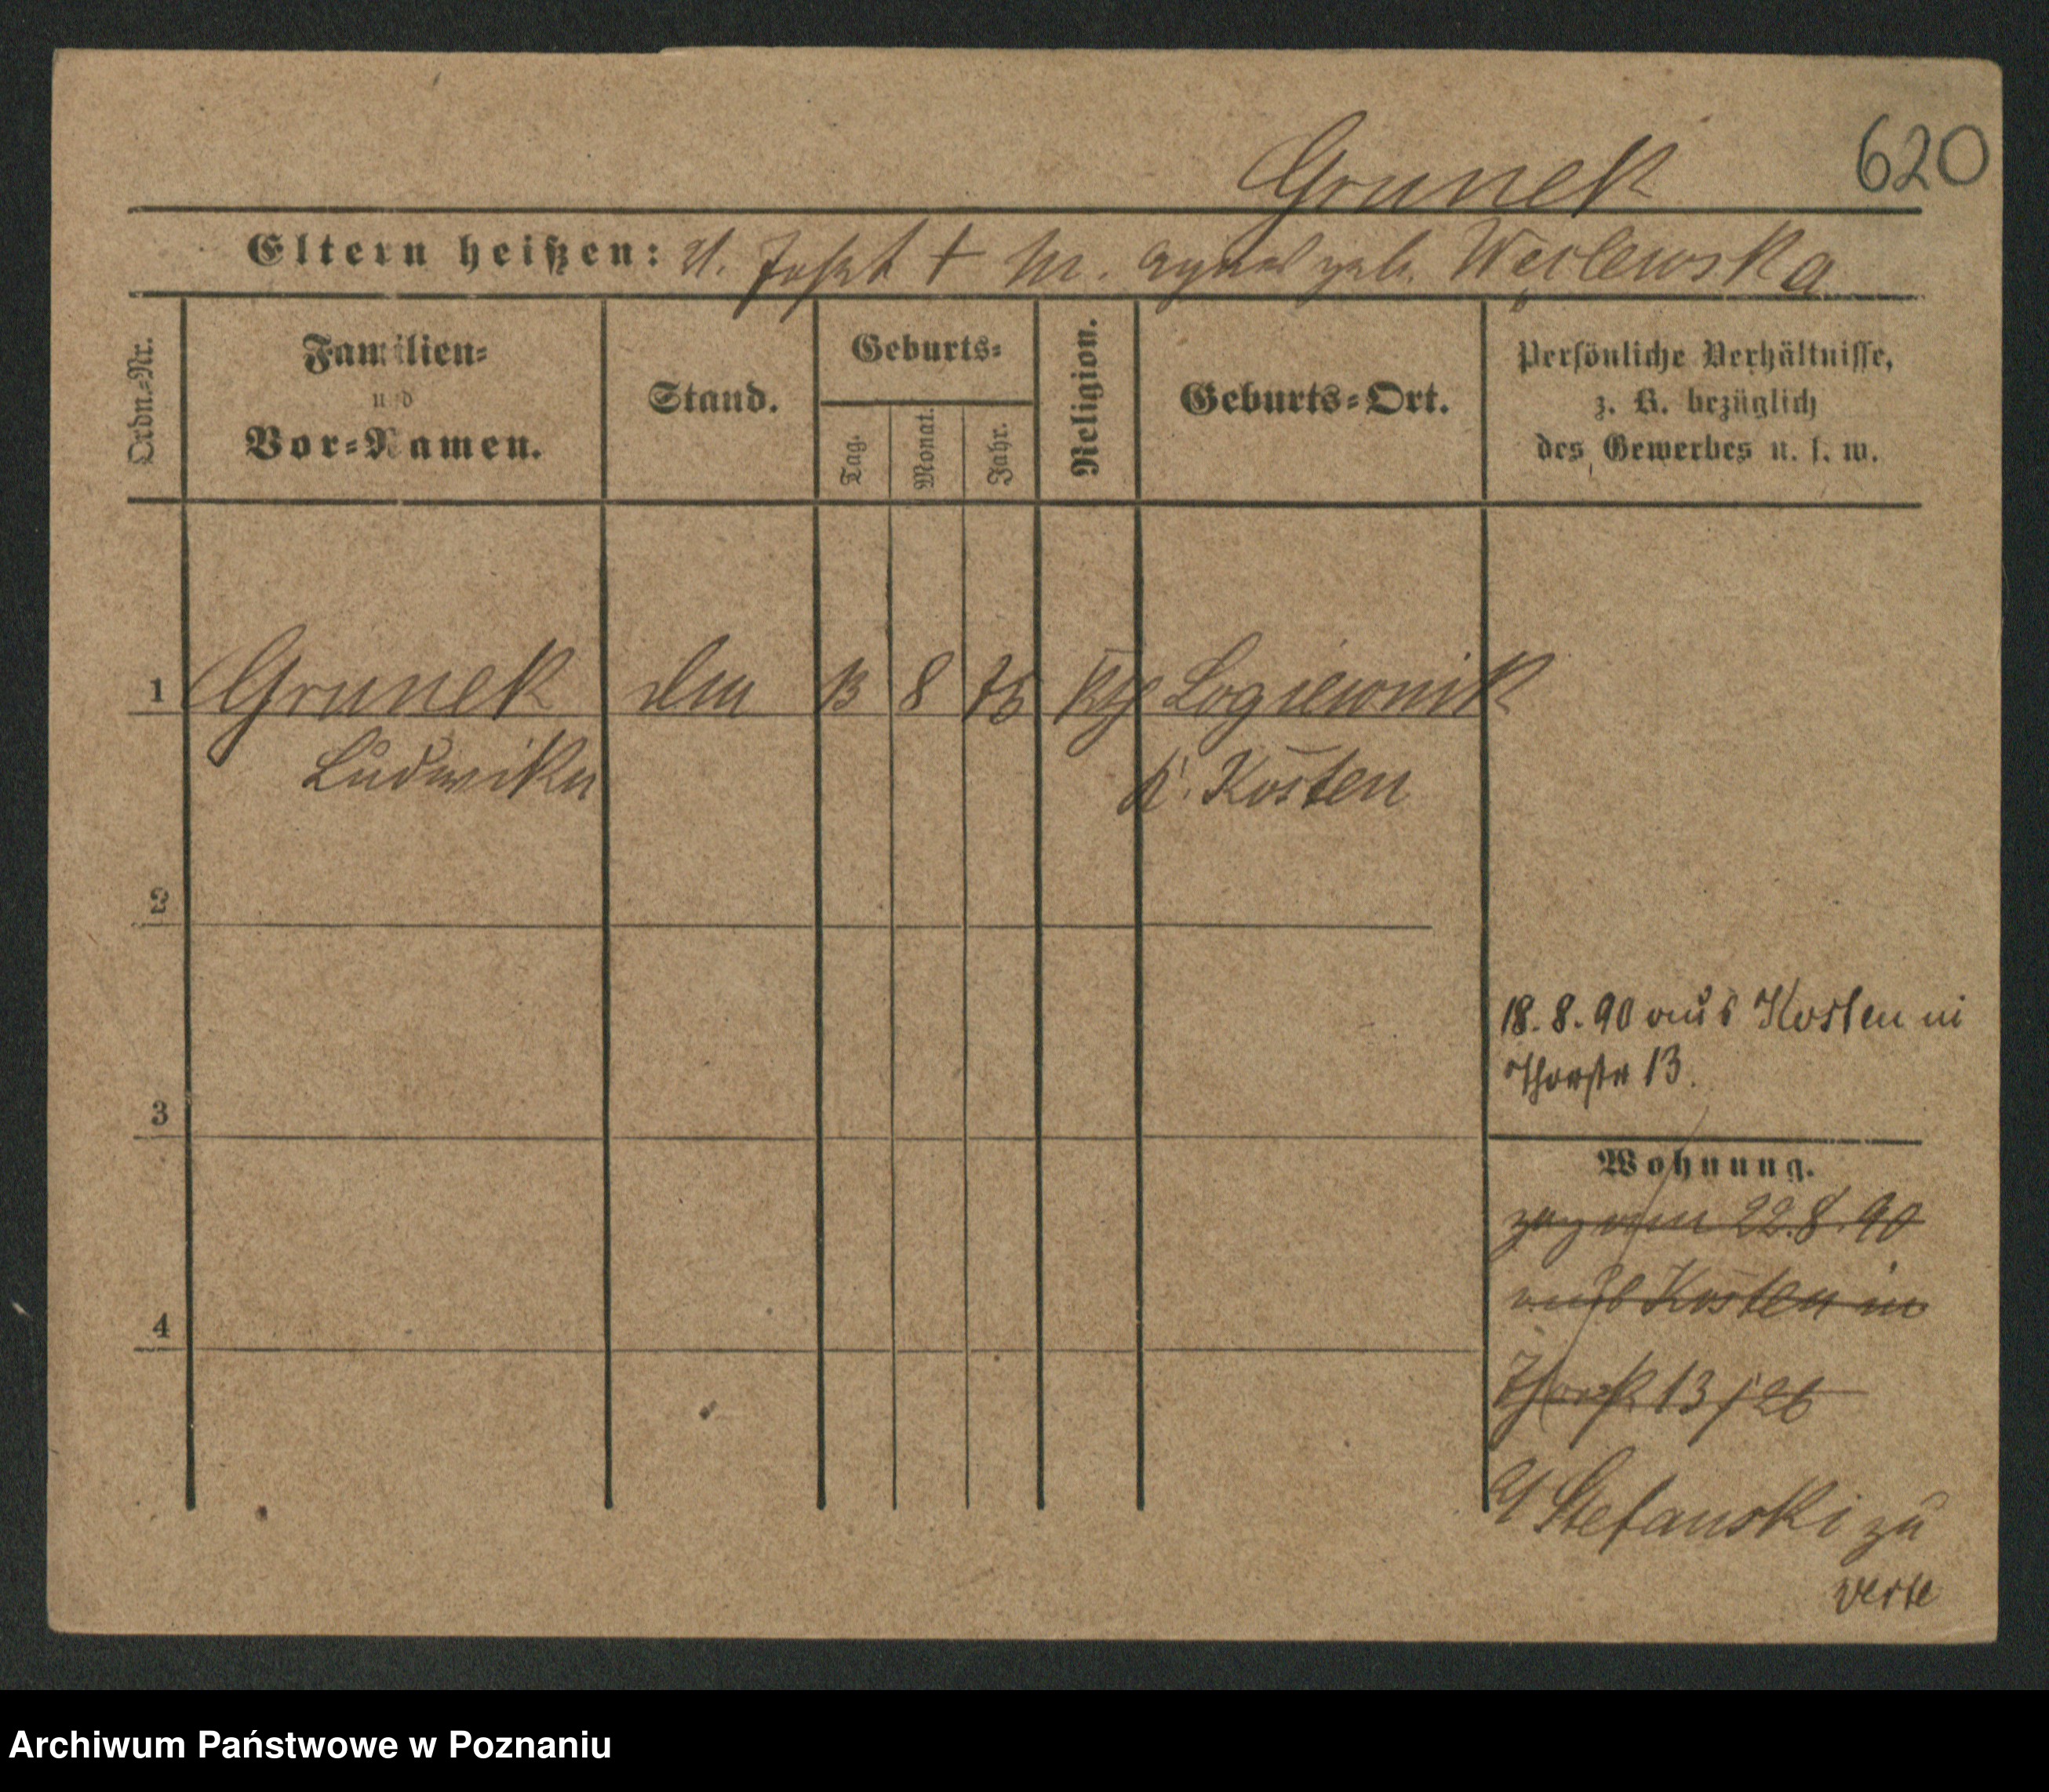 Grunek 620
Eltern heißen: V. Josef + M. Agnes geb. Węclewska
Ordn.=Nr.
Familien=
und
Vor=Namen.
Stand.
Geburts=
Tag.
Monat.
Jahr.
Religion.
Geburts=Ort.
Persönliche Verhältnisse,
z. B. bezüglich
des Gewerbes u. s. w.
1 Grunek 13 8 75 kth Logiewnik
Ludwika
K. Kosten
2
18.8.90 aus Kosten in
Thorstr 13.
3
Wohnung.
zog am 22.8.90
aus Kosten in
4
Thorstr 13/26
Stefanski zu
verte
Archiwum Państwowe w Poznaniu